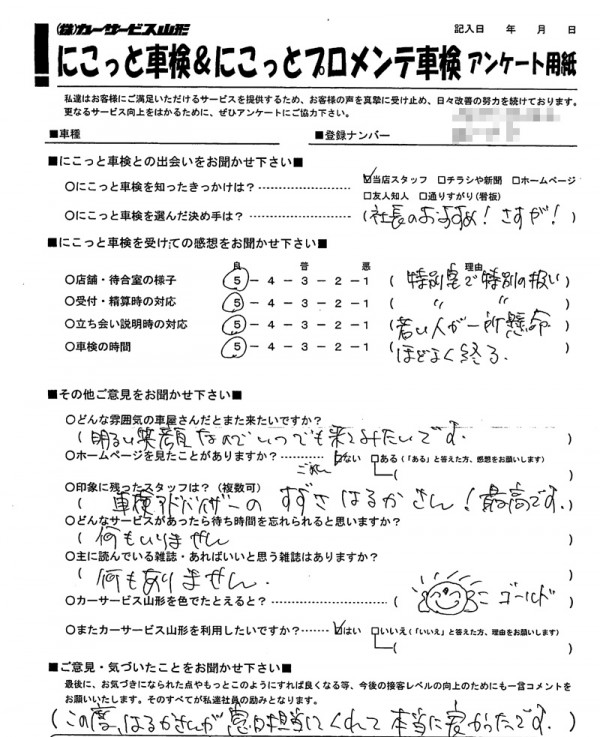 (株)カーサービス山形
記入日　年　月　日
にこっと車検&にこっとプロメンテ車検 アンケート用紙
私達はお客様にご満足いただけるサービスを提供するため、お客様の声を真摯に受け止め、日々改善の努力を続けております。
更なるサービス向上をはかるために、ぜひアンケートにご協力下さい。
■車種　■登録ナンバー
■にこっと車検との出会いをお聞かせ下さい■
○にこっと車検を知ったきっかけは？ ☑当店スタッフ □チラシや新聞 □ホームページ
□友人知人 □通りすがり(看板)
○にこっと車検を選んだ決め手は？ (社長のおすすめ！さすが！)
■にこっと車検を受けての感想をお聞かせ下さい■
良　普　悪　理由
○店舗・待合室の様子 5－4－3－2－1 (特別室で特別の扱い)
○受付・精算時の対応 5－4－3－2－1 (〃　〃)
○立ち会い説明時の対応 5－4－3－2－1 (若い人が一所懸命)
○車検の時間 5－4－3－2－1 (ほどよく終る.)
■その他ご意見をお聞かせ下さい■
○どんな雰囲気の車屋さんだとまた来たいですか？
(明るい笑顔なのでいつでも来てみたいです.)
○ホームページを見たことがありますか？ ☑ない □ある(「ある」と答えた方、感想をお願いします)
ごめん
○印象に残ったスタッフは？(複数可)
(車検アドバイザーの すずき はるかさん！最高です.)
○どんなサービスがあったら待ち時間を忘れられると思いますか？
(何もいりません)
○主に読んでいる雑誌・あればいいと思う雑誌はありますか？
(何もありません.)
○カーサービス山形を色でたとえると？ (ゴールド)
○またカーサービス山形を利用したいですか？ ☑はい □いいえ(「いいえ」と答えた方、理由をお願いします)
■ご意見・気づいたことをお聞かせ下さい■
最後に、お気づきになられた点やもっとこのようにすれば良くなる等、今後の接客レベルの向上のためにも一言コメントを
お願いいたします。そのすべてが私達社員の励みとなります。
(この度、はるかさんが 担当してくれて 本当に良かったです.)